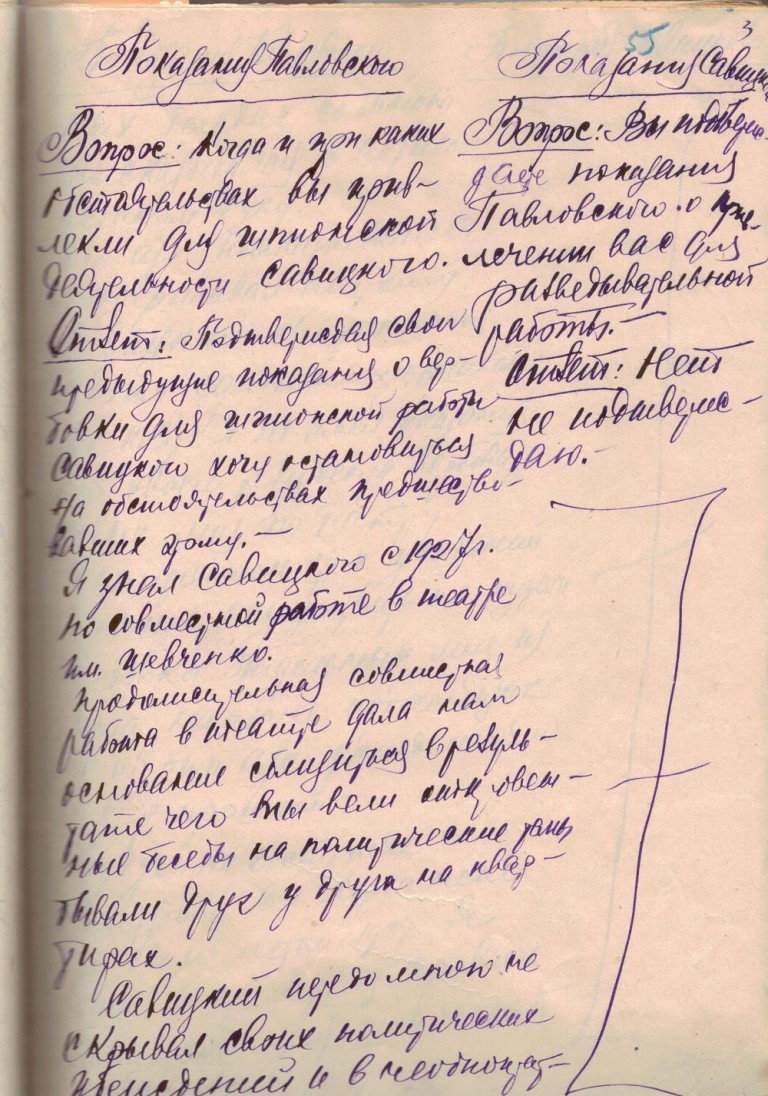 3
55
Показания Павловского
Вопрос: Когда и при каких
обстоятельствах вы прив-
лекли для шпионской
деятельности Савицкого.
Ответ: Подтверждая свои
предыдущие показания о вер-
бовки для шпионской работы
Савицкого хочу остановиться
на обстоятельствах предшество-
вавших этому.-
Я знал Савицкого с 1927 г.
по совместной работе в театре
им. Шевченко.
Продолжительная совместная
работа в театре дала нам
основание сблизиться в резуль-
тате чего мы вели
ные беседы на политические темы
бывали друг у друга на квар-
тирах.
Савицкий передо мною не
скрывал своих политических
убеждений и в неоднократ-
Показания Савицкого
Вопрос: Вы подтверж-
даете показания
Павловского о прив-
лечении вас для
разведывательной
работы.-
Ответ: Нет
не подтверж-
даю.-